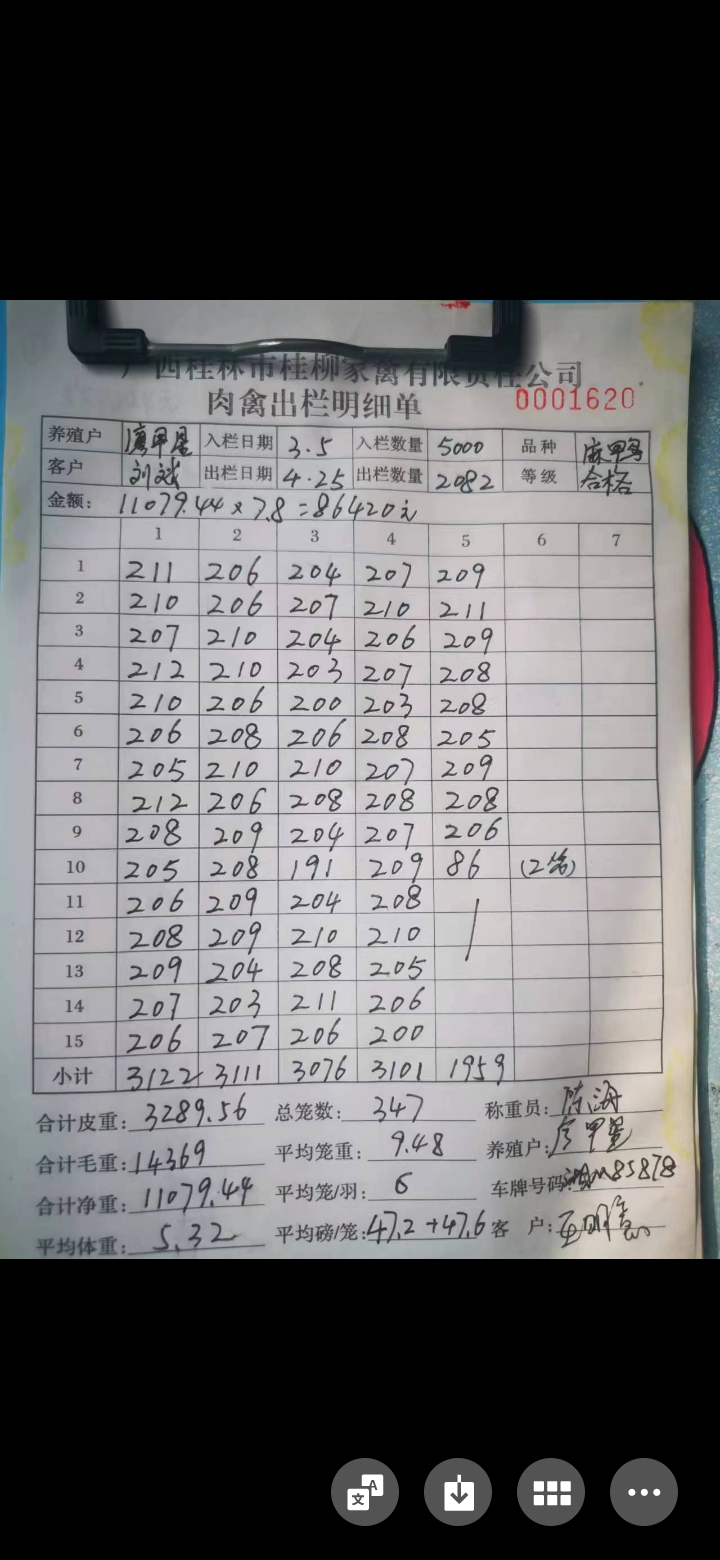 广西桂林市桂柳家禽有限责任公司
肉禽出栏明细单 0001620
养殖户 入栏日期 3.5 入栏数量 5000 品种
客户 刘斌 出栏日期 4.25 出栏数量 2082 等级 合格
金额: 11079.44×7.8=86420元
1 2 3 4 5 6 7
1 211 206 204 207 209
2 210 206 207 210 211
3 207 210 204 206 209
4 212 210 203 207 208
5 210 206 200 203 208
6 206 208 206 208 205
7 205 210 210 207 209
8 212 206 208 208 208
9 208 209 204 207 206
10 205 208 191 209 86 (2笼)
11 206 209 204 208
12 208 209 210 210
13 209 204 208 205
14 207 203 211 206
15 206 207 206 200
小计 3122 3111 3076 3101 1959
合计皮重: 3289.56 总笼数: 347 称重员: 陈海
合计毛重: 14369 平均笼重: 9.48 养殖户:
合计净重: 11079.44 平均笼/羽: 6 车牌号码: 85878
平均体重: 5.32 平均磅/笼: 47.2+47.6 客户: